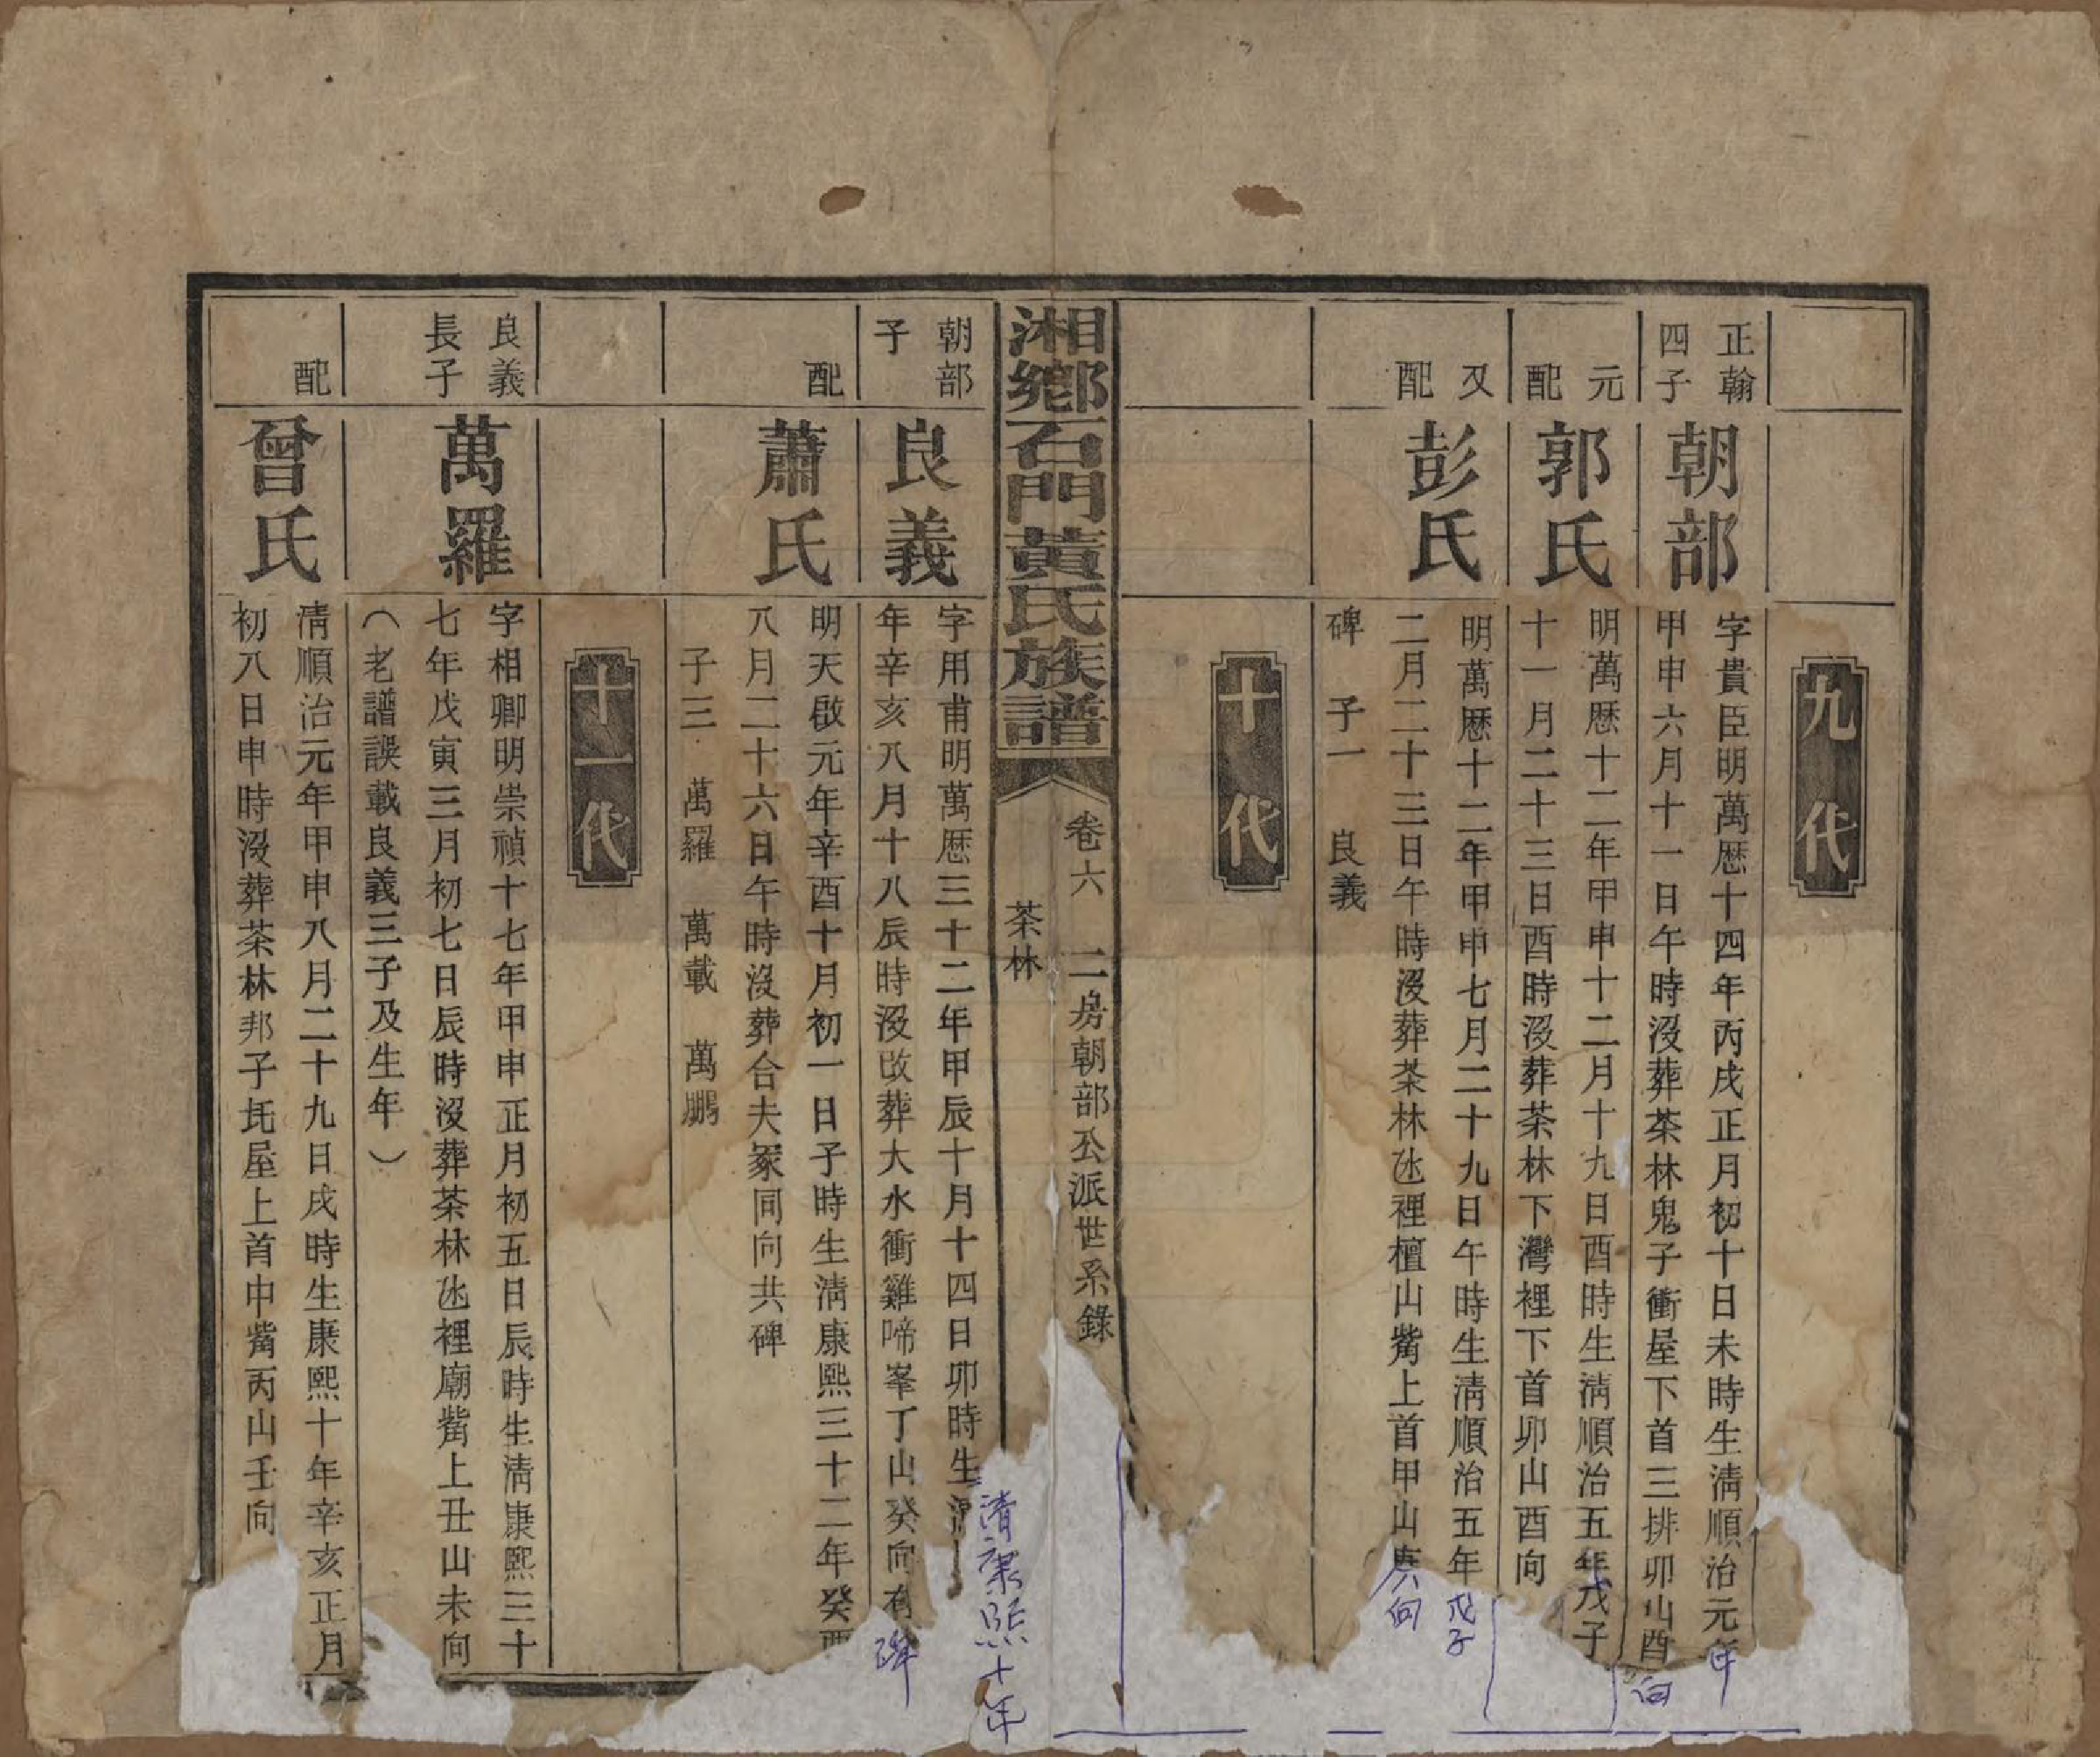 九代
正翰
四子
朝部
字貴臣明萬歷十四年丙戌正月初十日未時生淸順治元年
甲申六月十一日午時沒葬茶林鬼子衝屋下首三排卯山酉向
元
配
郭氏
明萬歷十二年甲申十二月十九日酉時生淸順治五年戊子
十一月二十三日酉時沒葬茶林下灣裡下首卯山酉向
又
配
彭氏
明萬歷十二年甲申七月二十九日午時生淸順治五年戊子
二月二十三日午時沒葬茶林氹裡檀山嘴上首甲山庚向
碑 子一 良義
十代
湘鄉石門黃氏族譜
卷六 二房朝部公派世系錄
茶林
朝部
子
良義
字用甫明萬歷三十二年甲辰十月十四日卯時生淸康熙十年
年辛亥八月十八辰時沒改葬大水衝雞啼峯丁山癸向有碑
配
蕭氏
明天啟元年辛酉十月初一日子時生淸康熙三十二年癸酉
八月二十六日午時沒葬合夫冢同向共碑
子三 萬羅 萬載 萬鵬
十一代
良義
長子
萬羅
字相卿明崇禎十七年甲申正月初五日辰時生淸康熙三十
七年戊寅三月初七日辰時沒葬茶林氹裡廟嘴上丑山未向
（老譜誤載良義三子及生年）
配
曾氏
淸順治元年甲申八月二十九日戌時生康熙十年辛亥正月
初八日申時沒葬茶林邦子坵屋上首中嘴丙山壬向